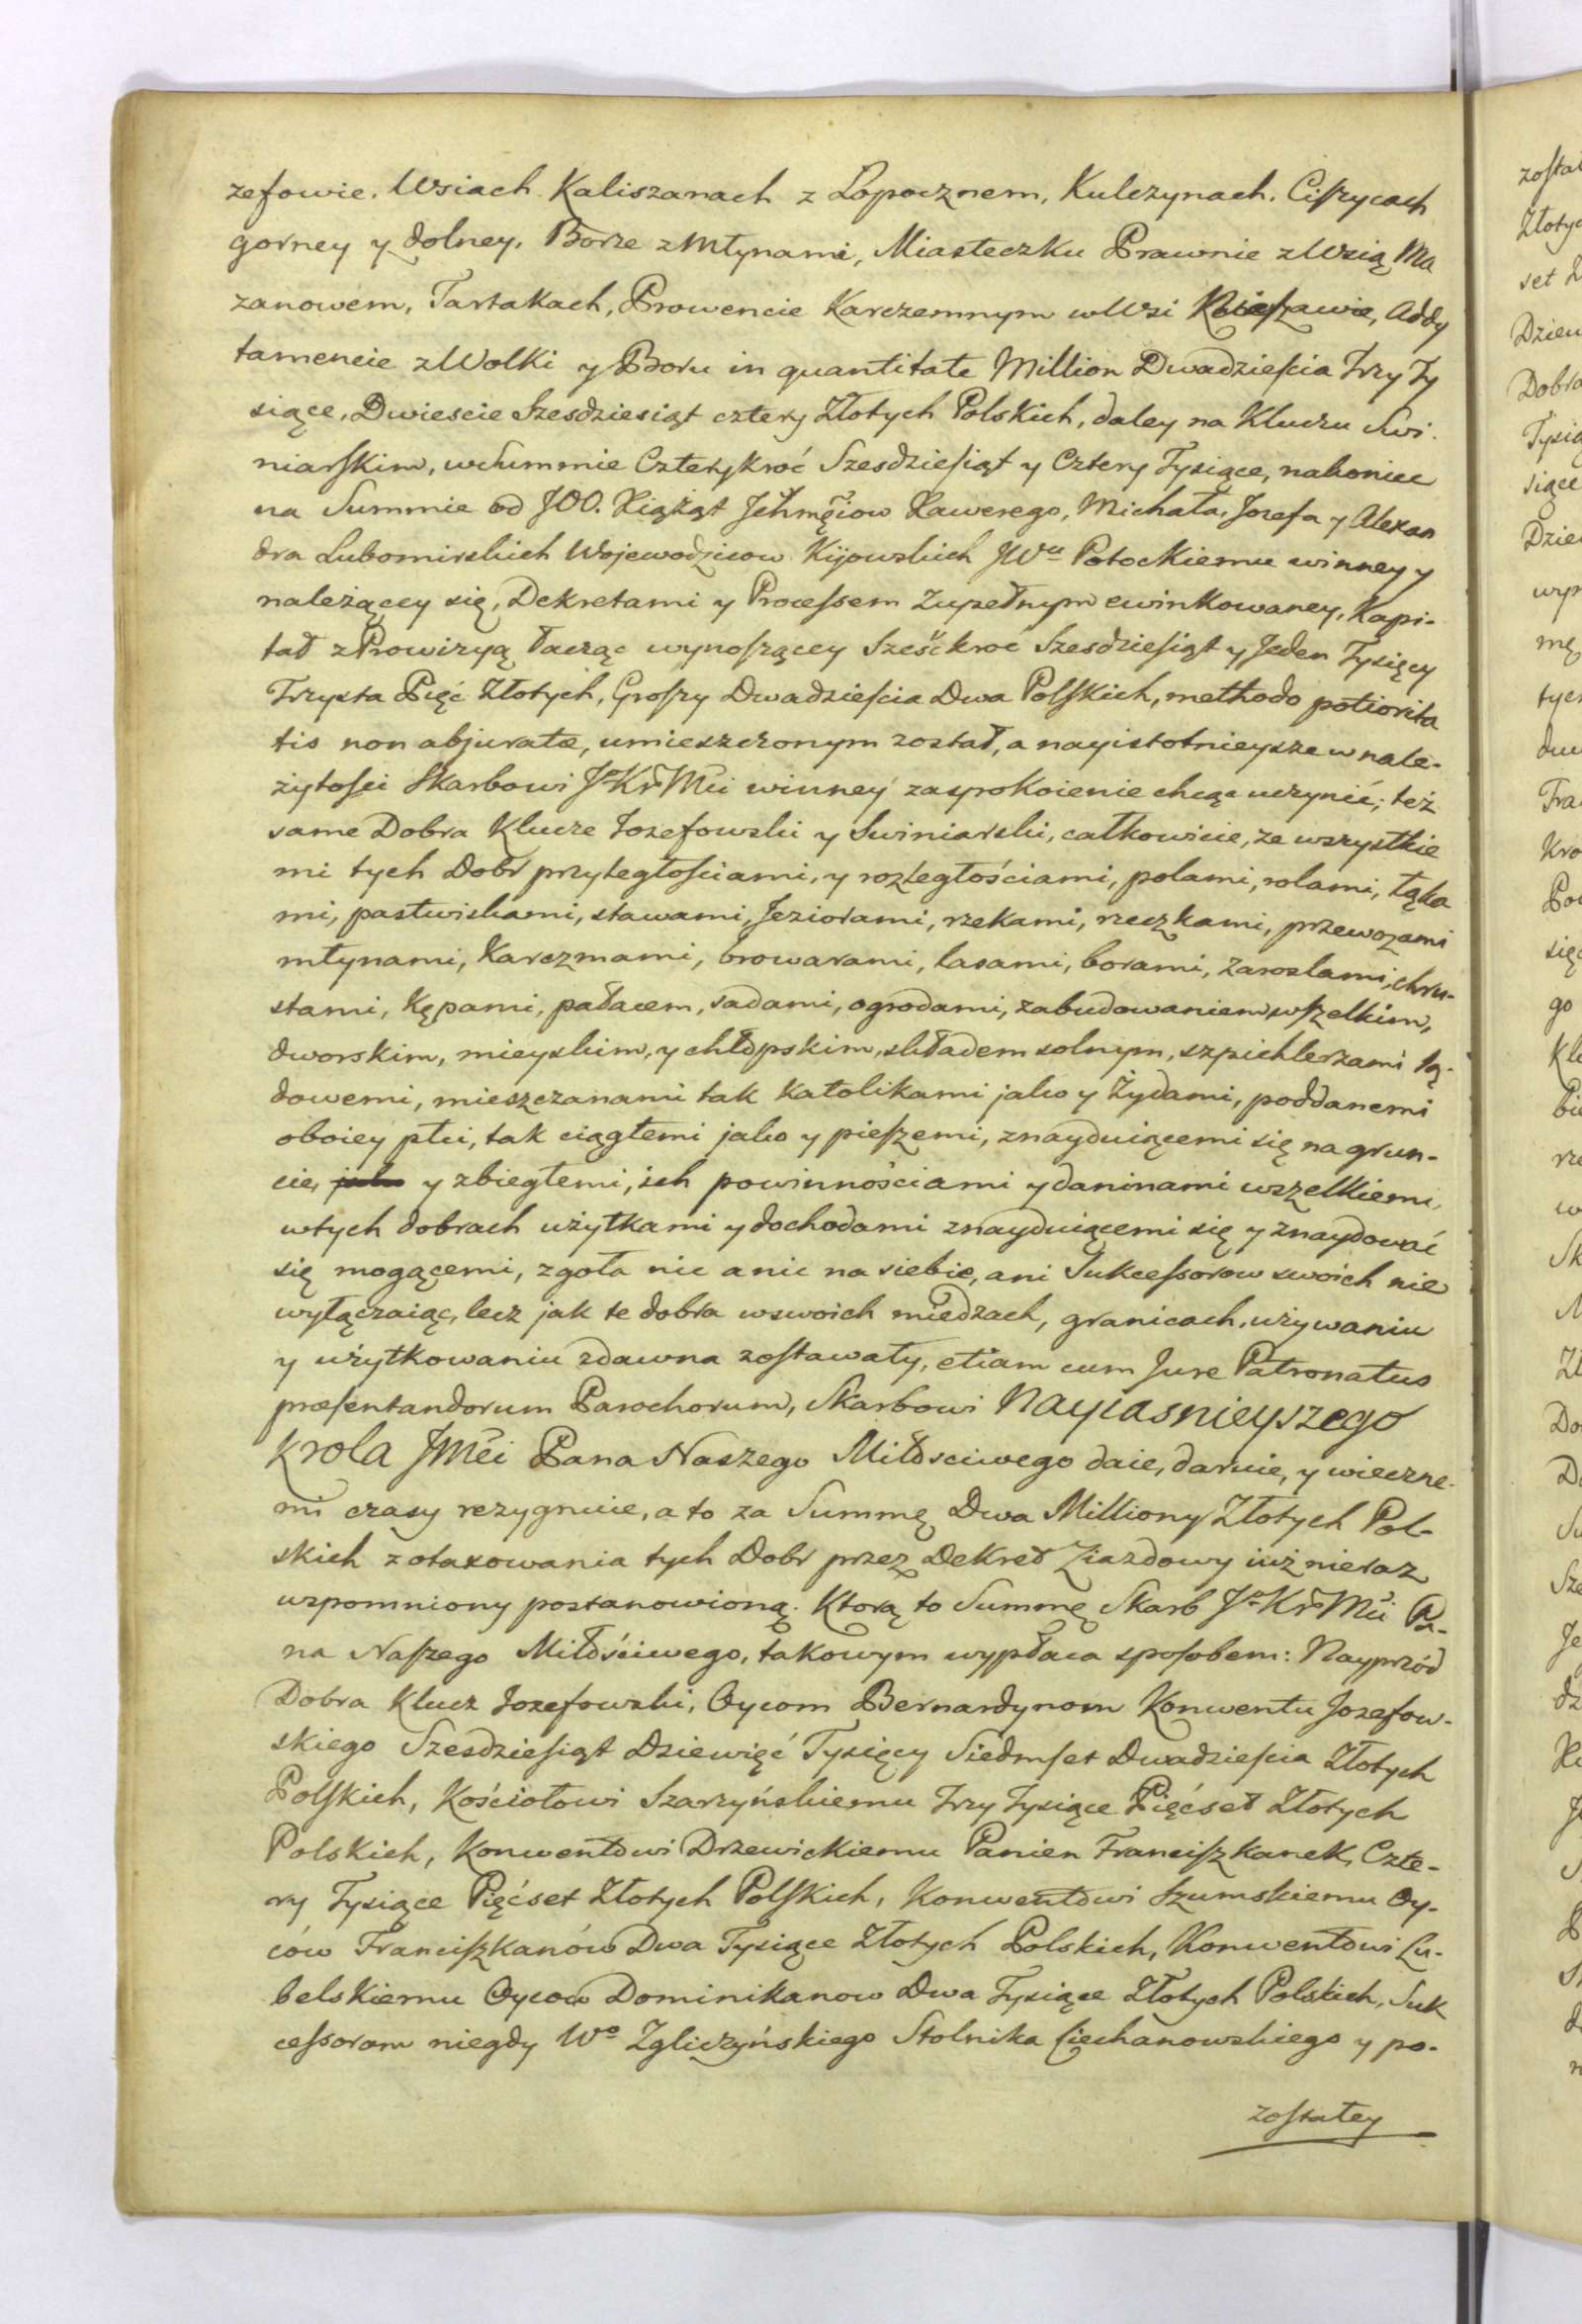 zefowie. Wsiach Kaliszanach z Łopocznem, Kulczynach. Ciszycach
gorney y dolney. Borze z Młynami, Miasteczku Prawnie z Wsią Ma
zanowem, Tartakach, Prowencie Karczemnym w Wsi Addy
tamencie z Wolki y Boru in quantitate Million Dwadzieścia Trzy Ty
siące, Dwiescie Szesdziesiąt cztery Złotych Polskich, daley na Kluczu Swi-
niarskim, w Summie Czterykroć Szesdziesiąt y Cztery Tysiące, nakoniec
na Summie od JOO. Xiążąt Jchmęiow Xawerego, Michała, Jozefa y Alexan
dra Lubomirskich Wojewodzicow Kijowskich JWu Potockiemu winney y
należącey się, Dekretami y Processem zupełnym ewinkowaney, Kapi-
tał z Prowizyą łącząc wynoszącey Sześćkroć Szesdziesiąt y Jeden Tysięcy
Trzysta Pięć Złotych, Groszy Dwadzieścia Dwa Polskich, methodo potiorita
tis non abjuratæ, umieszczonym został, a nayistotnieysze w nale-
żytości Skarbowi JoKrMci winney zaspokoienie chcąc uczynić; też
same Dobra Klucze Jozefowski y Swiniarski, całkowicie, ze wszystkie
mi tych Dobr przyległościami, y rozległościami, polami, rolami, łąka
mi, pastwiskami, stawami, Jeziorami, rzekami, rzeczkami, przewozami
młynami, Karczmami, browarami, lasami, borami, zaroslami, chru-
stami, kępami, pałacem, sadami, ogrodami, zabudowaniem wszelkim,
dworskim, mieyskim, y chłopskim, składem solnym, szpichlerzami lą-
dowemi, mieszczanami tak Katolikami jako y Żydami, poddanemi
oboiey płci, tak ciągłemi jako y pieszemi, znayduiącemi się na grun-
cie, y zbiegłemi, ich powinnościami y daninami wszelkiemi,
w tych dobrach użytkami y dochodami znayduiącemi się y znaydować
się mogącemi, zgoła nic a nic na siebie, ani Sukcessorow swoich nie
wyłączaiąc, lecz jak te dobra w swoich miedzach, granicach, używaniu
y użytkowaniu zdawna zostawały, etiam cum Jure Patronatus
præsentandorum Parochorum, Skarbowi Nayiasnieyszego
Krola Jmci Pana Naszego Miłosciwego daie, daruie, y wieczne-
mi czasy rezygnuie, a to za Summę Dwa Milliony Złotych Pol-
skich z otaxowania tych Dobr przez Dekret Ziazdowy iuż nieraz
wspomniony postanowioną. Ktorą to Summę Skarb JoKrMci Pa-
na Naszego Miłościwego, takowym wypłaca sposobem: Nayprzód
Dobra Klucz Jozefowski, Oycom Bernardynom Konwentu Jozefow-
skiego Szesdziesiąt Dziewięć Tysięcy Siedmset Dwadzieścia Złotych
Polskich, Kościołowi Szarzyńskiemu Trzy Tysiące Pięćset Złotych
Polskich, Konwentowi Drzewickiemu Panien Franciszkanek, Czte-
ry Tysiące Pięćset Złotych Polskich, Konwentowi Szumskiemu Oy-
ców Franciszkanów Dwa Tysiące Złotych Polskich, Konwentowi Lu-
belskiemu Oycow Dominikanow Dwa Tysiące Złotych Polskich, Suk
cessorom niegdy Wo Zgliczyńskiego Stolnika Ciechanowskiego y po-
zostałey